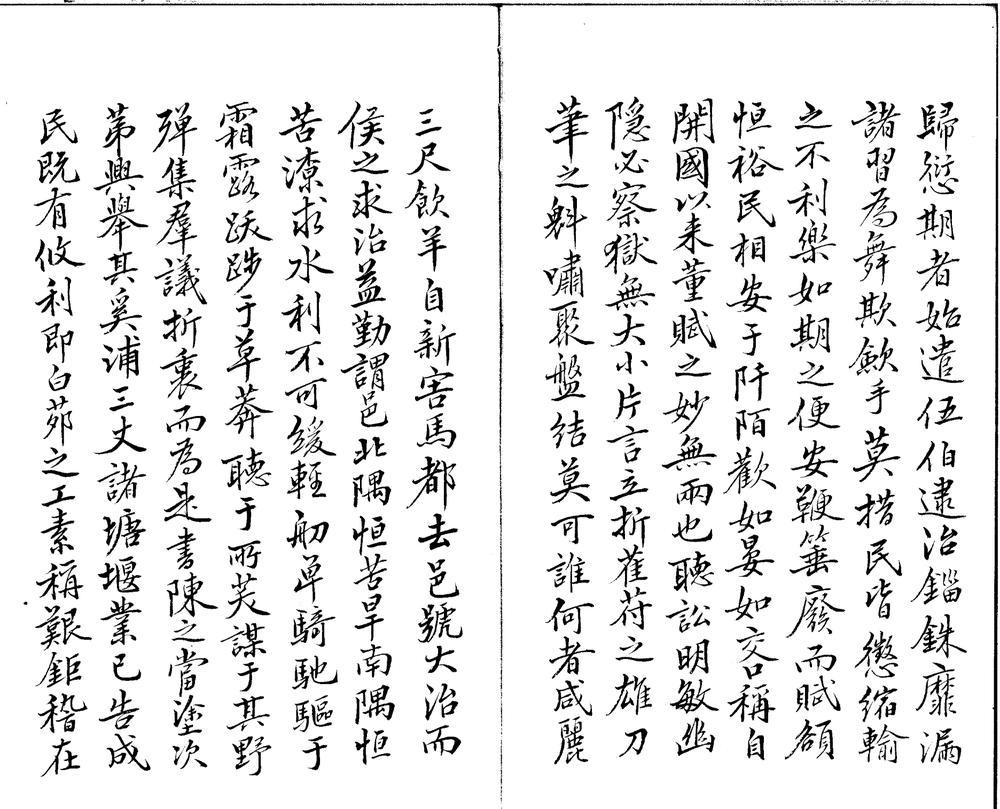 歸愆期者始遣伍伯逮治錙銖靡漏
諸習為舞欺歛手莫措民皆懲縮輸
之不利樂如期之便安鞭箠廢而賦額
恒裕民相安于阡陌歡如晏如交口稱自
開國以来董賦之妙無兩也聽訟明敏幽
隐必察獄無大小片言立折萑苻之雄刀
筆之魁嘯聚盤結莫可誰何者咸麗
三尺飲羊自新害馬都去邑號大治而
侯之求治益勤謂邑北隅恒苦旱南隅恒
苦潦求水利不可緩輕舠单騎馳驅于
霜露跋踄于草莽聽于所芺謀于其野
殫集羣議折衷而為是書陳之當塗次
苐興舉其奚浦三丈諸塘堰業已告成
民既有攸利即白茆之工素稱艱鉅稽在